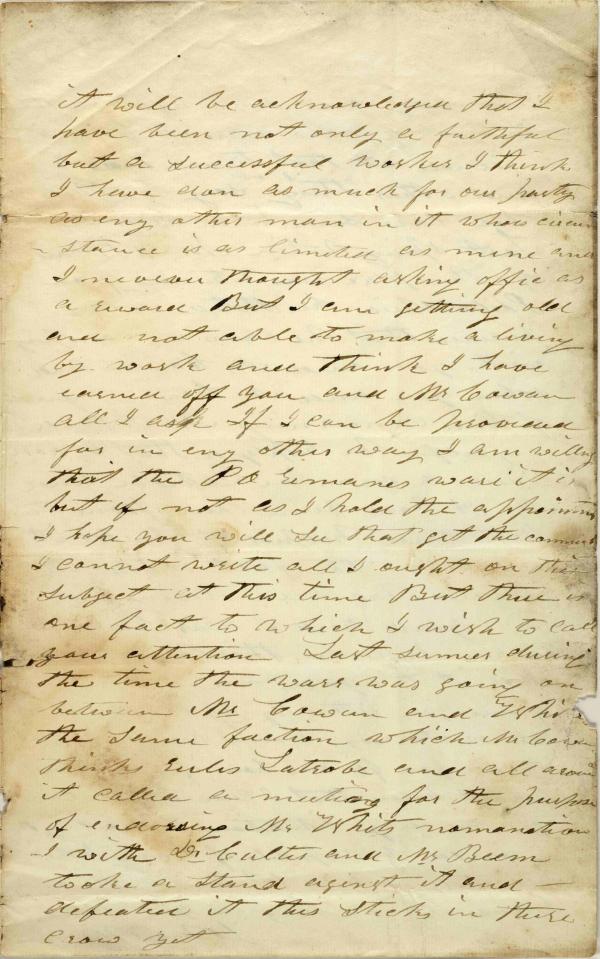 it will be acknowledged that I
have been not only a faithful
but a successful worker I think
I have don as much for our party
as eny other man in it whos circum
-stance is as limited as mine and
I neveer thought asking offic as
a reward But I am getting old
and not able to make a living
by work and think I have
earned off you and Mr Cowan
all I ask If I can be provided
for in eny other way I am willing
that the P O remanes ware it is
but if not as I hold the appointm
I hope you will See that get the
I cannot write all I ought on this
Subject at this time But thre is
one fact to which I wish to call
your attention Last sumer during
the time the warr was going on
between Mr Cowan and White
the same faction which Mr Cowan
thinks rules Latrobe and all around
it called a meeting for the purpose
of endorsing Mr Whits nomanation
I with Dr and Mr Beem
tooke a stand agenst it and -
defeated it this sticks in there
craw yet